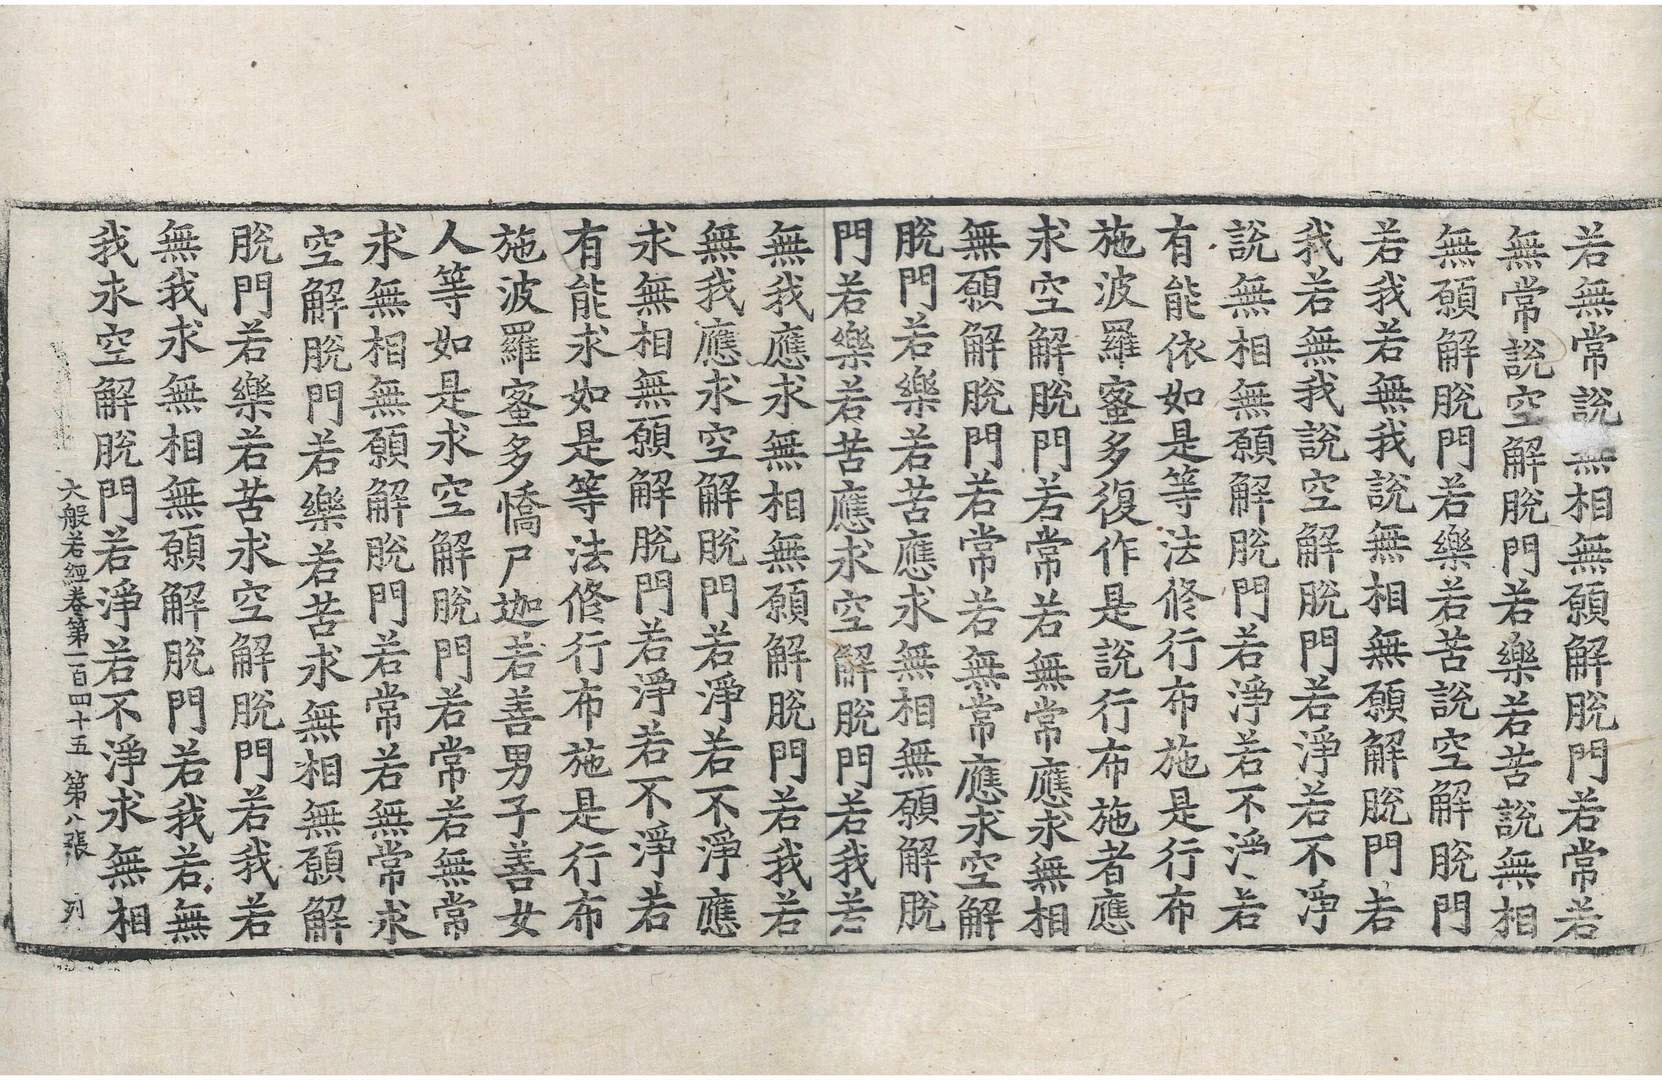 若無常說無相無願解脫門若常若
無常說空解脫門若樂若苦說無相
無願解脫門若樂若苦說空解脫門
若我若無我說無相無願解脫門若
我若無我說空解脫門若淨若不淨
說無相無願解脫門若淨若不淨若
有能依如是等法修行布施是行布
施波羅蜜多復作是說行布施者應
求空解脫門若常若無常應求無相
無願解脫門若常若無常應求空解
脫門若樂若苦應求無相無願解脫
門若樂若苦應求空解脫門若我若
無我應求無相無願解脫門若我若
無我應求空解脫門若淨若不淨應
求無相無願解脫門若淨若不淨若
有能求如是等法修行布施是行布
施波羅蜜多憍尸迦若善男子善女
人等如是求空解脫門若常若無常
求無相無願解脫門若常若無常求
空解脫門若樂若苦求無相無願解
脫門若樂若苦求空解脫門若我若
無我求無相無願解脫門若我若無
我求空解脫門若淨若不淨求無相
大般若經卷第一百四十五 第八張 列